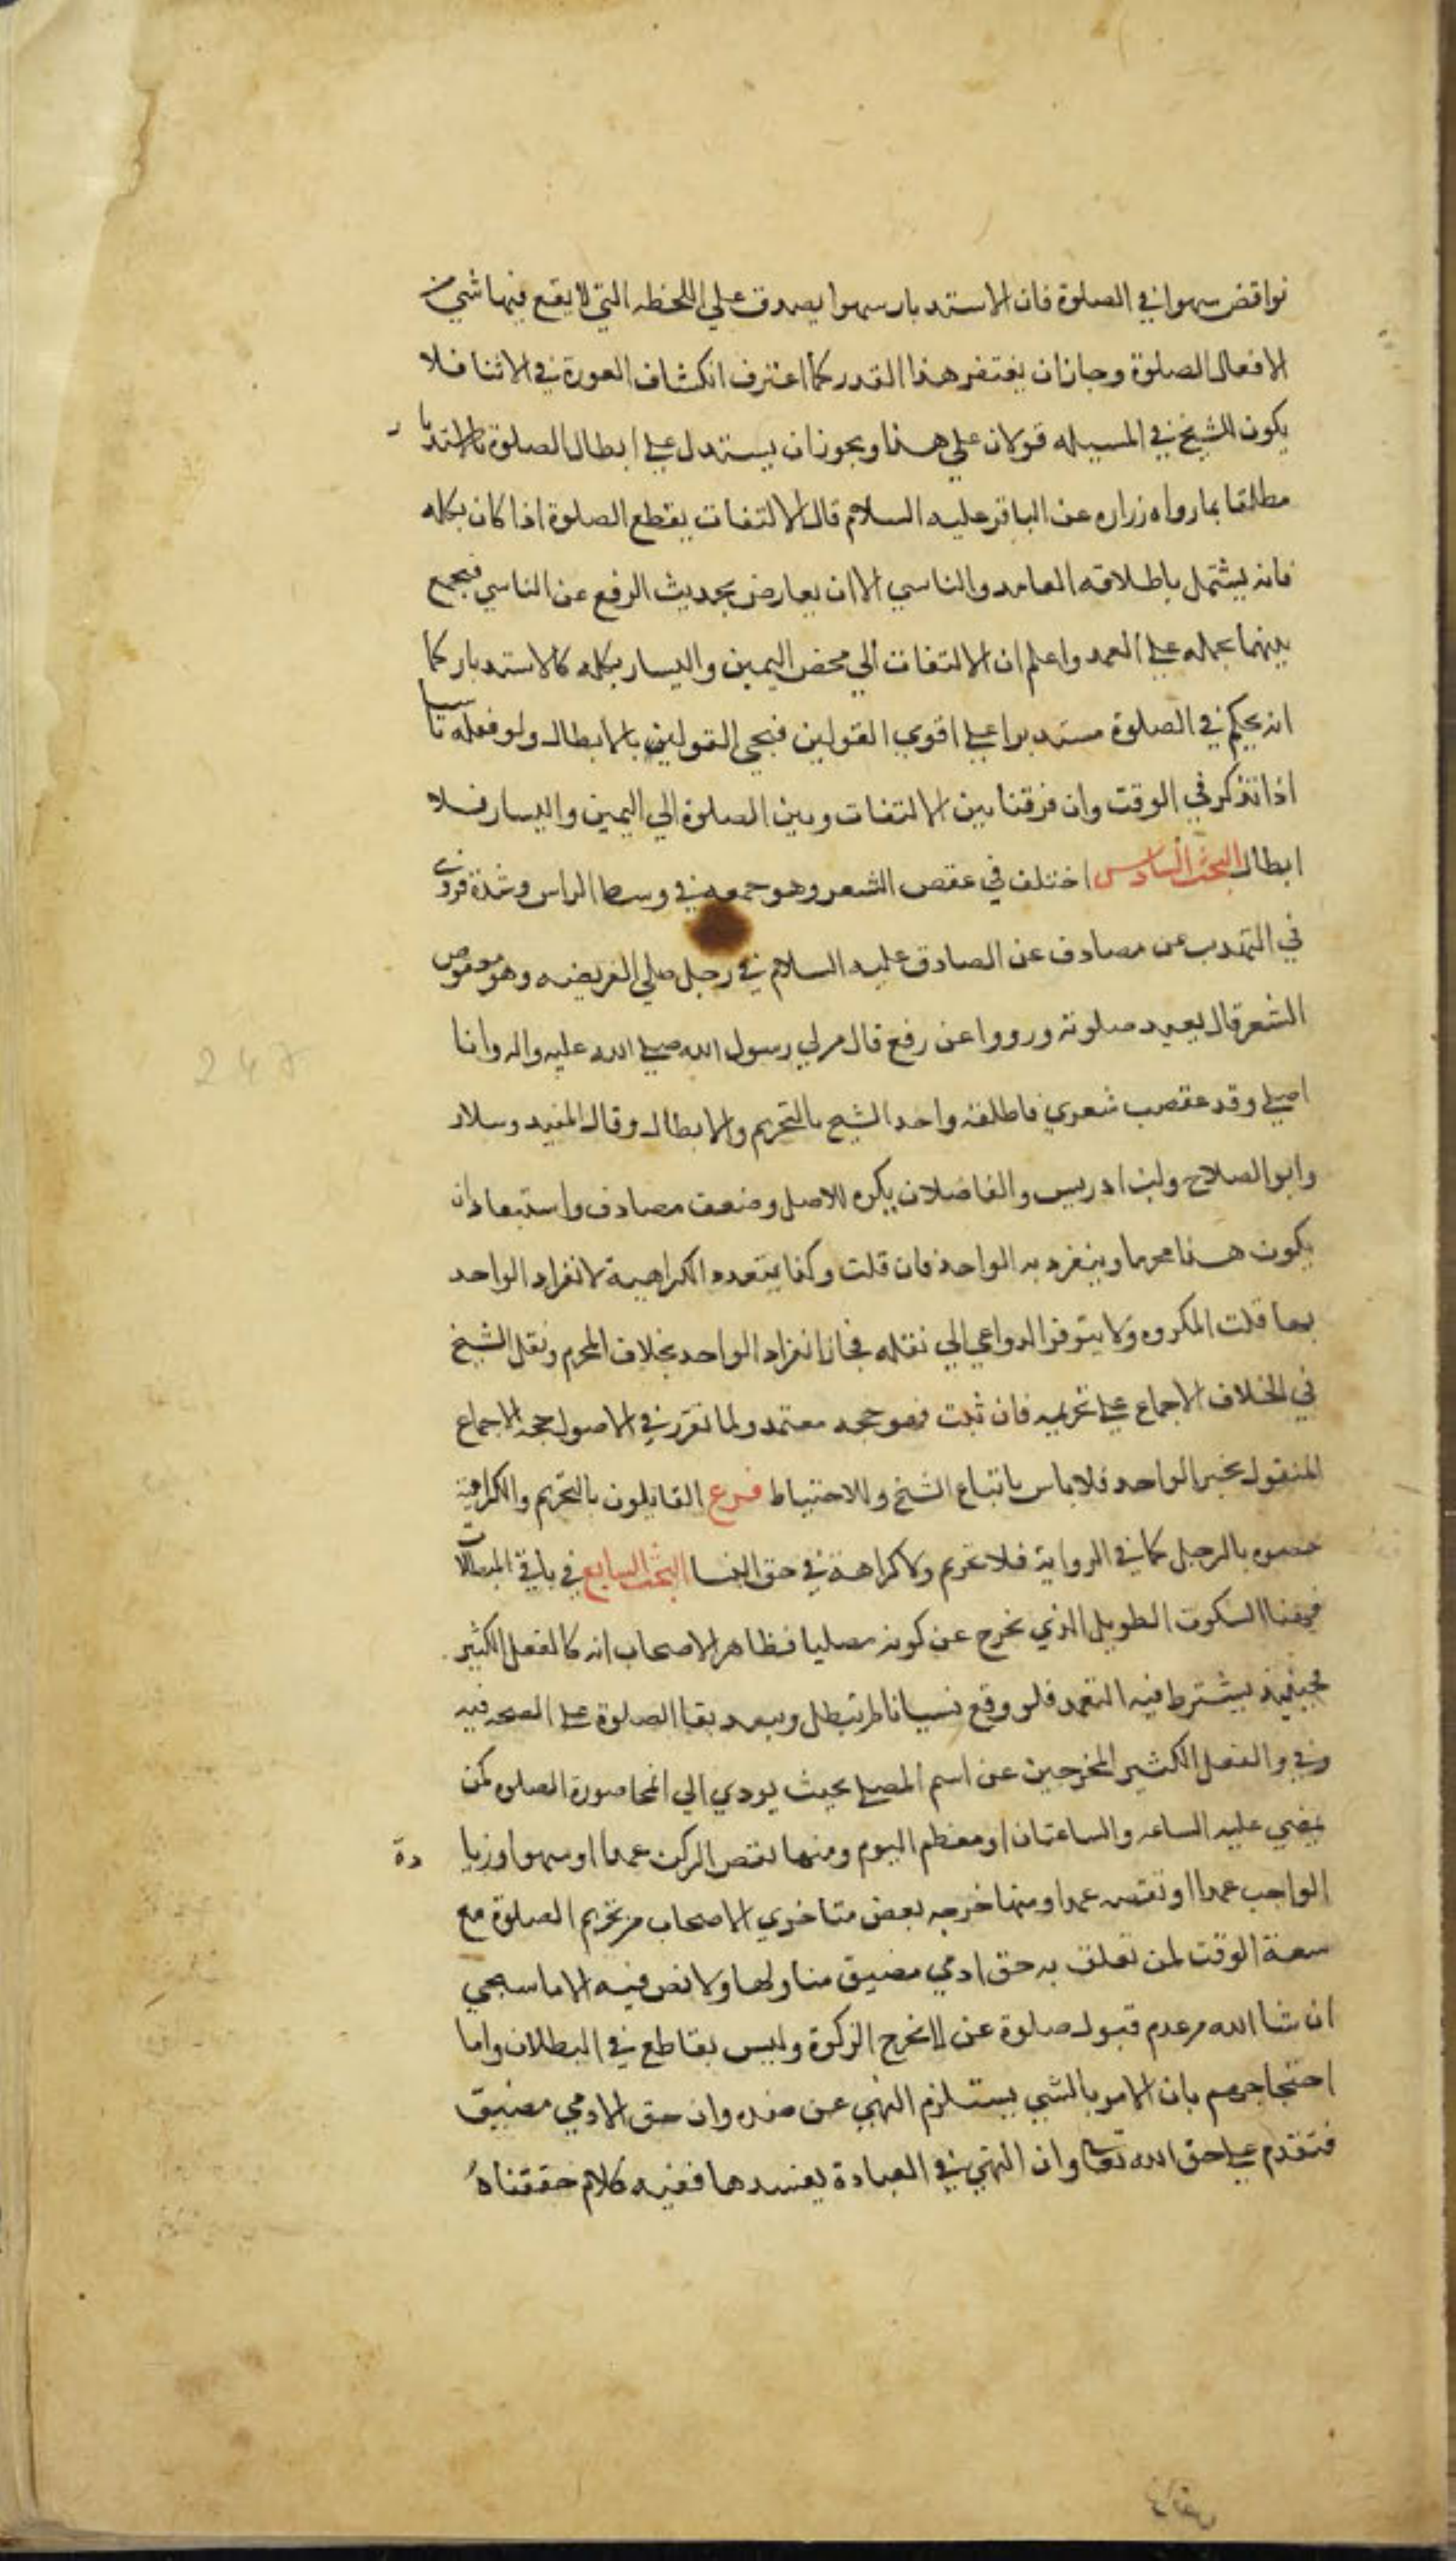 نواقض سهوا في الصلوة فان الاستدبار سهوا يصدق على اللحظه التي لا يقع فيها شي من
الافعال الصلوة وجاز ان يغتفر هذا القدر كما اغترف انكشاف العورة في الاثنا فلا
يكون للشيخ في المسيله قولان على هذا ويجوز ان يستدل على ابطال الصلوة بالاستدبار
مطلقا بما رواه زراره عن الباقر عليه السلام قال الالتفات يقطع الصلوة اذا كان بكله
فانه يشتمل باطلاقه العامد والناسي الا ان يعارض بحديث الرفع عن الناسي فيجمع
بينهما بحمله على العمد واعلم ان الالتفات الى محض اليمين واليسار بكله كالاستدبار كما
انه يحكم في الصلوة مستدبرا على اقوى القولين فيجي القولين بالابطال ولو فعله ناسيا
اذا تذكر في الوقت وان فرقنا بين الالتفات وبين الصلوة الي اليمين واليسار فلا
ابطال البحث السادس اختلف في عقص الشعر وهو جمعه في وسط الراس وشده فروى
في التهذيب عن مصادف عن الصادق عليه السلام في رجل صلى الفريضه وهو معقوص
الشعر قال يعيد صلوته ورووا عن رفع قال مر لي رسول الله صلى الله عليه واله وانا
اصلي وقد عقصت شعري فاطلقه واخذ الشيخ بالتحريم والابطال وقال المفيد وسلار
وابو الصلاح وابن ادريس والفاضلان يكره للاصل وضعف مصادف واستبعاد ان
يكون هذا محرما وينفرد به الواحد فان قلت وكذا يتعدد الكراهية لانفراد الواحد
بها قلت المكروه ولا يتوفر الدواعي الي نقله فجاز انفراد الواحد بخلاف المحرم ونقل الشيخ
في الخلاف الاجماع على تحريمه فان ثبت فهو حجه معتمد ولما تقرر في الاصول حجه الاجماع
المنقول بخبر الواحد فلا باس باتباع الشيخ وللاحتياط فرع القايلون بالتحريم والكراهية
خصوه بالرجل كما في الرواية فلا تحريم ولا كراهة في حق النسا البحث السابع في باقي المبطلات
فمنها السكوت الطويل الذي يخرج عن كونه مصليا فظاهر الاصحاب انه كالفعل الكثير
فحينيذ يشترط فيه التعمد فلو وقع نسيانا لم تبطل ويبعد بقا الصلوة على الصحه فيه
وفي والفعل الكثير المخرجين عن اسم المصلي بحيث يودي الي انمحا صورة الصلوه كمن
يمضي عليه الساعه والساعتان او معظم اليوم ومنها نقص الركن عمدا او سهوا وزيادة
الواجب عمدا او نقصه عمدا ومنها خرجه بعض متاخري الاصحاب من تحريم الصلوة مع
سعة الوقت لمن تعلق به حق ادمي مضيق مناولها ولا نص فيه الا ما سيجي
ان شا الله من عدم قبول صلوة عن لا يخرج الزكوة وليس بقاطع في البطلان واما
احتجاجهم بان الامر بالشي يستلزم النهي عن ضده وان حق الادمي مضيق
فتقدم على حق الله تعالى وان النهي في العبادة يفسدها ففيه كلام حققناه